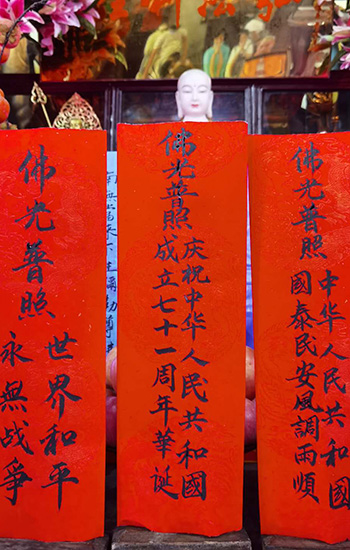 佛光普照
世界和平
永無战爭
佛光普照
庆祝中华人民共和國
成立七十一周年華诞
佛光普照
中华人民共和國
國泰民安風調雨順